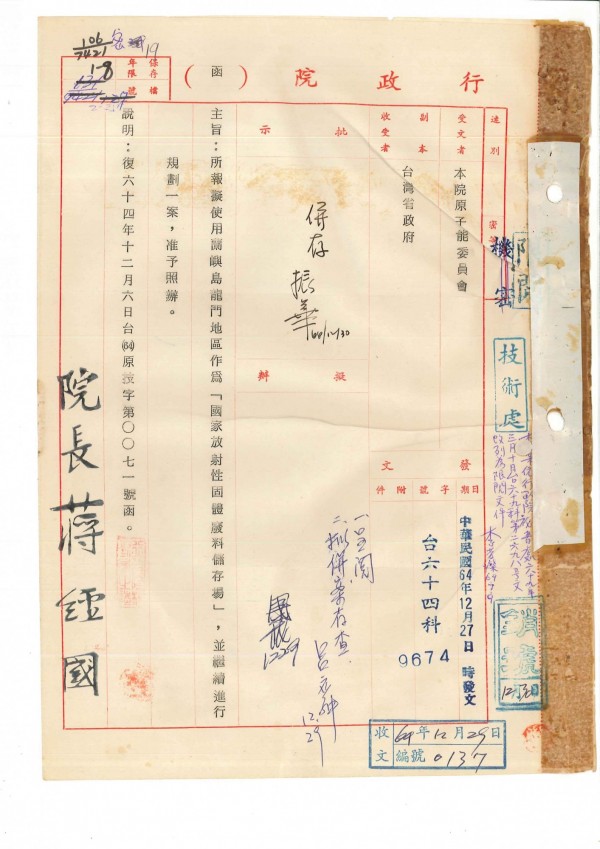 行政院
（函）
保存年限
檔號
106
7421
18
19
速別
密等
機密
限閱
技術處
受文者
本院原子能委員會
副本收受者
台灣省政府
發文
日期
中華民國64年12月27日 時發文
字號
台六十四科 9674
附件
批示
併存 振華 64/12/30
擬辦
一、呈閱
二、擬併案存查
12.29
1229
主旨：所報擬使用蘭嶼島龍門地區作為「國家放射性固體廢料儲存場」，並繼續進行
規劃一案，准予照辦。
說明：復六十四年十二月六日台(64)原技字第〇〇七一號函。
院長 蔣經國
收文
64年12月29日
編號 0137